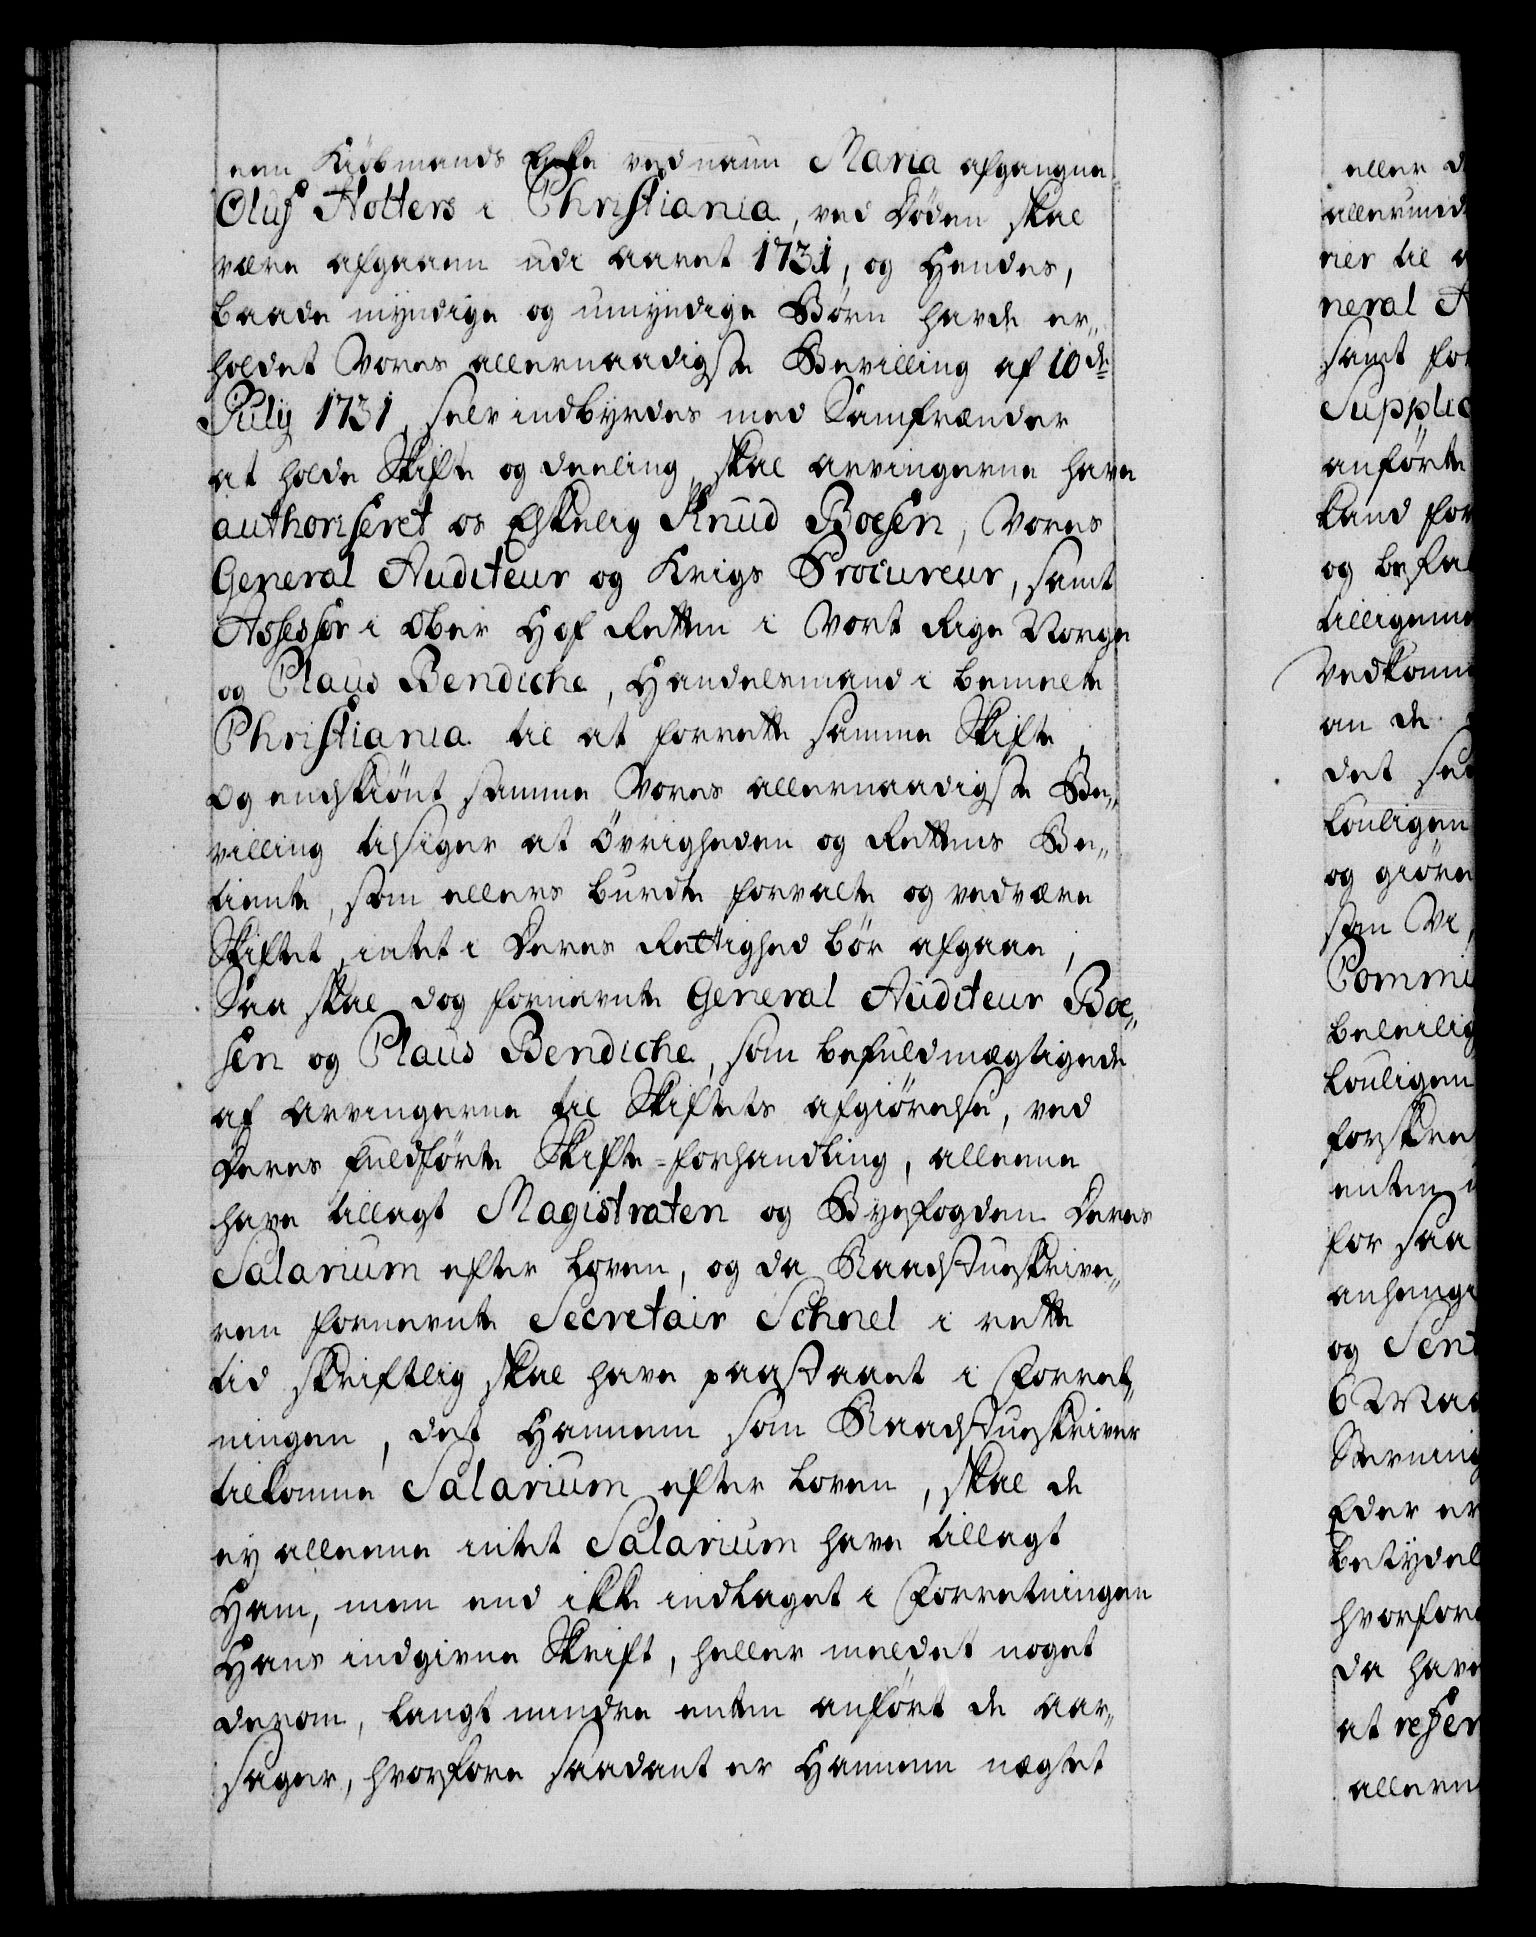 een Kiöbmands Enke ved naun Maria afgangne
Oluf Holters i Christiania, ved Döden skal
være afgaaen udi aaret 1731, og Hendes,
baade myndige og umyndige Börn havde er„
holdet Vores allernaadigste Bevilling af 10de
July 1731, selv indbyrdes med Samfrænder
at holde Skifte og deeling, skal arvingerne have
authoriseret os Elskelig Knud Boesen, Vores
General Auditeur og Krigs Procureur, samt
Assessor i Ober Hof Retten i Vort Rige Norge
og Claus Bendiche, Handelsmand i bemelte
Christiania til at forrette samme Skifte,
og endskiönt samme Vores allernaadigste Be„
villing tilsiger at Övrigheden og Rettens Be„
tiente, som ellers burdte forvalte og vedvære
Skiftet, intet i Deres Rettighed bör afgaae,
Saa skal dog fornevnte General Auditeur Boe„
sen og Claus Bendiche, som befuldmægtigede
af arvingerne til Skiftets afgiörelse, ved
Deres fuldförte Skifte-forhandling, alleene
have tillagt Magistraten og Byefogden Deres
Salarium efter loven, og da Raadstueskrive„
ren fornevnte Secretair Schnel i rette
tid skriftlig skal have paastaaet i Forret„
ningen, det Hannem som Raadstueskriver
tilkomne Salarium efter loven, skal de
ey alleene intet Salarium have tillagt
Ham, men end ikke indtaget i Forretningen
Hans indgivne Skrift, heller meldet noget
derom, langt mindre enten anfört de aar„
sager, hvorfore saadant er Hannem nægtet
eller
aller
rier til
neral
samt for
Supplic
anförte
land for
og befa
tilligeme
Vedkomm
an de
det
louligen
og giöre
som Vi
Commi
beleilig
louligen
forskre
enten
for saa
anhengi
og Sent
6
Eder er
betydel
hvorfore
da have
at refer
allern